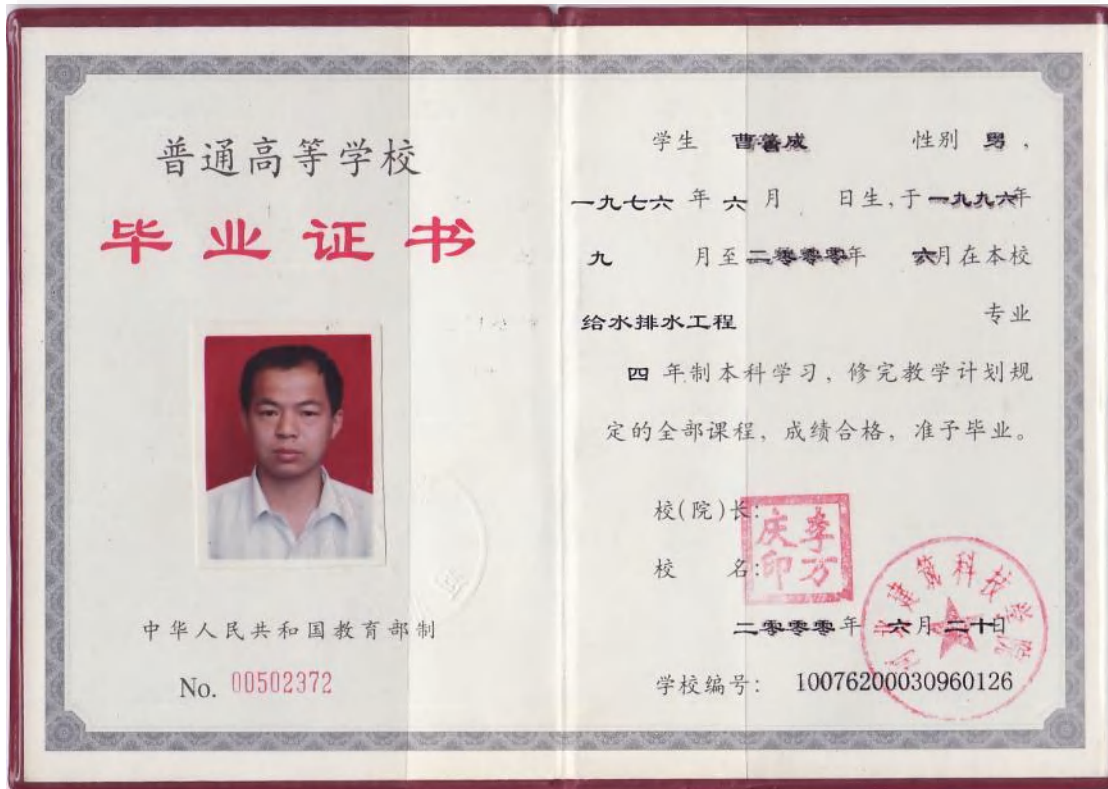 普通高等学校
毕业证书
中华人民共和国教育部制
No. 00502372
学生 曹善成 性别 男,
一九七六 年 六 月 日生,于 一九九六年
九 月至 二零零零年 六月在本校
给水排水工程 专业
四 年制本科学习, 修完教学计划规
定的全部课程, 成绩合格, 准予毕业。
校(院)长:
李万庆印
校 名:
河北建筑科技学院
二零零零年 六月二十日
学校编号: 10076200030960126